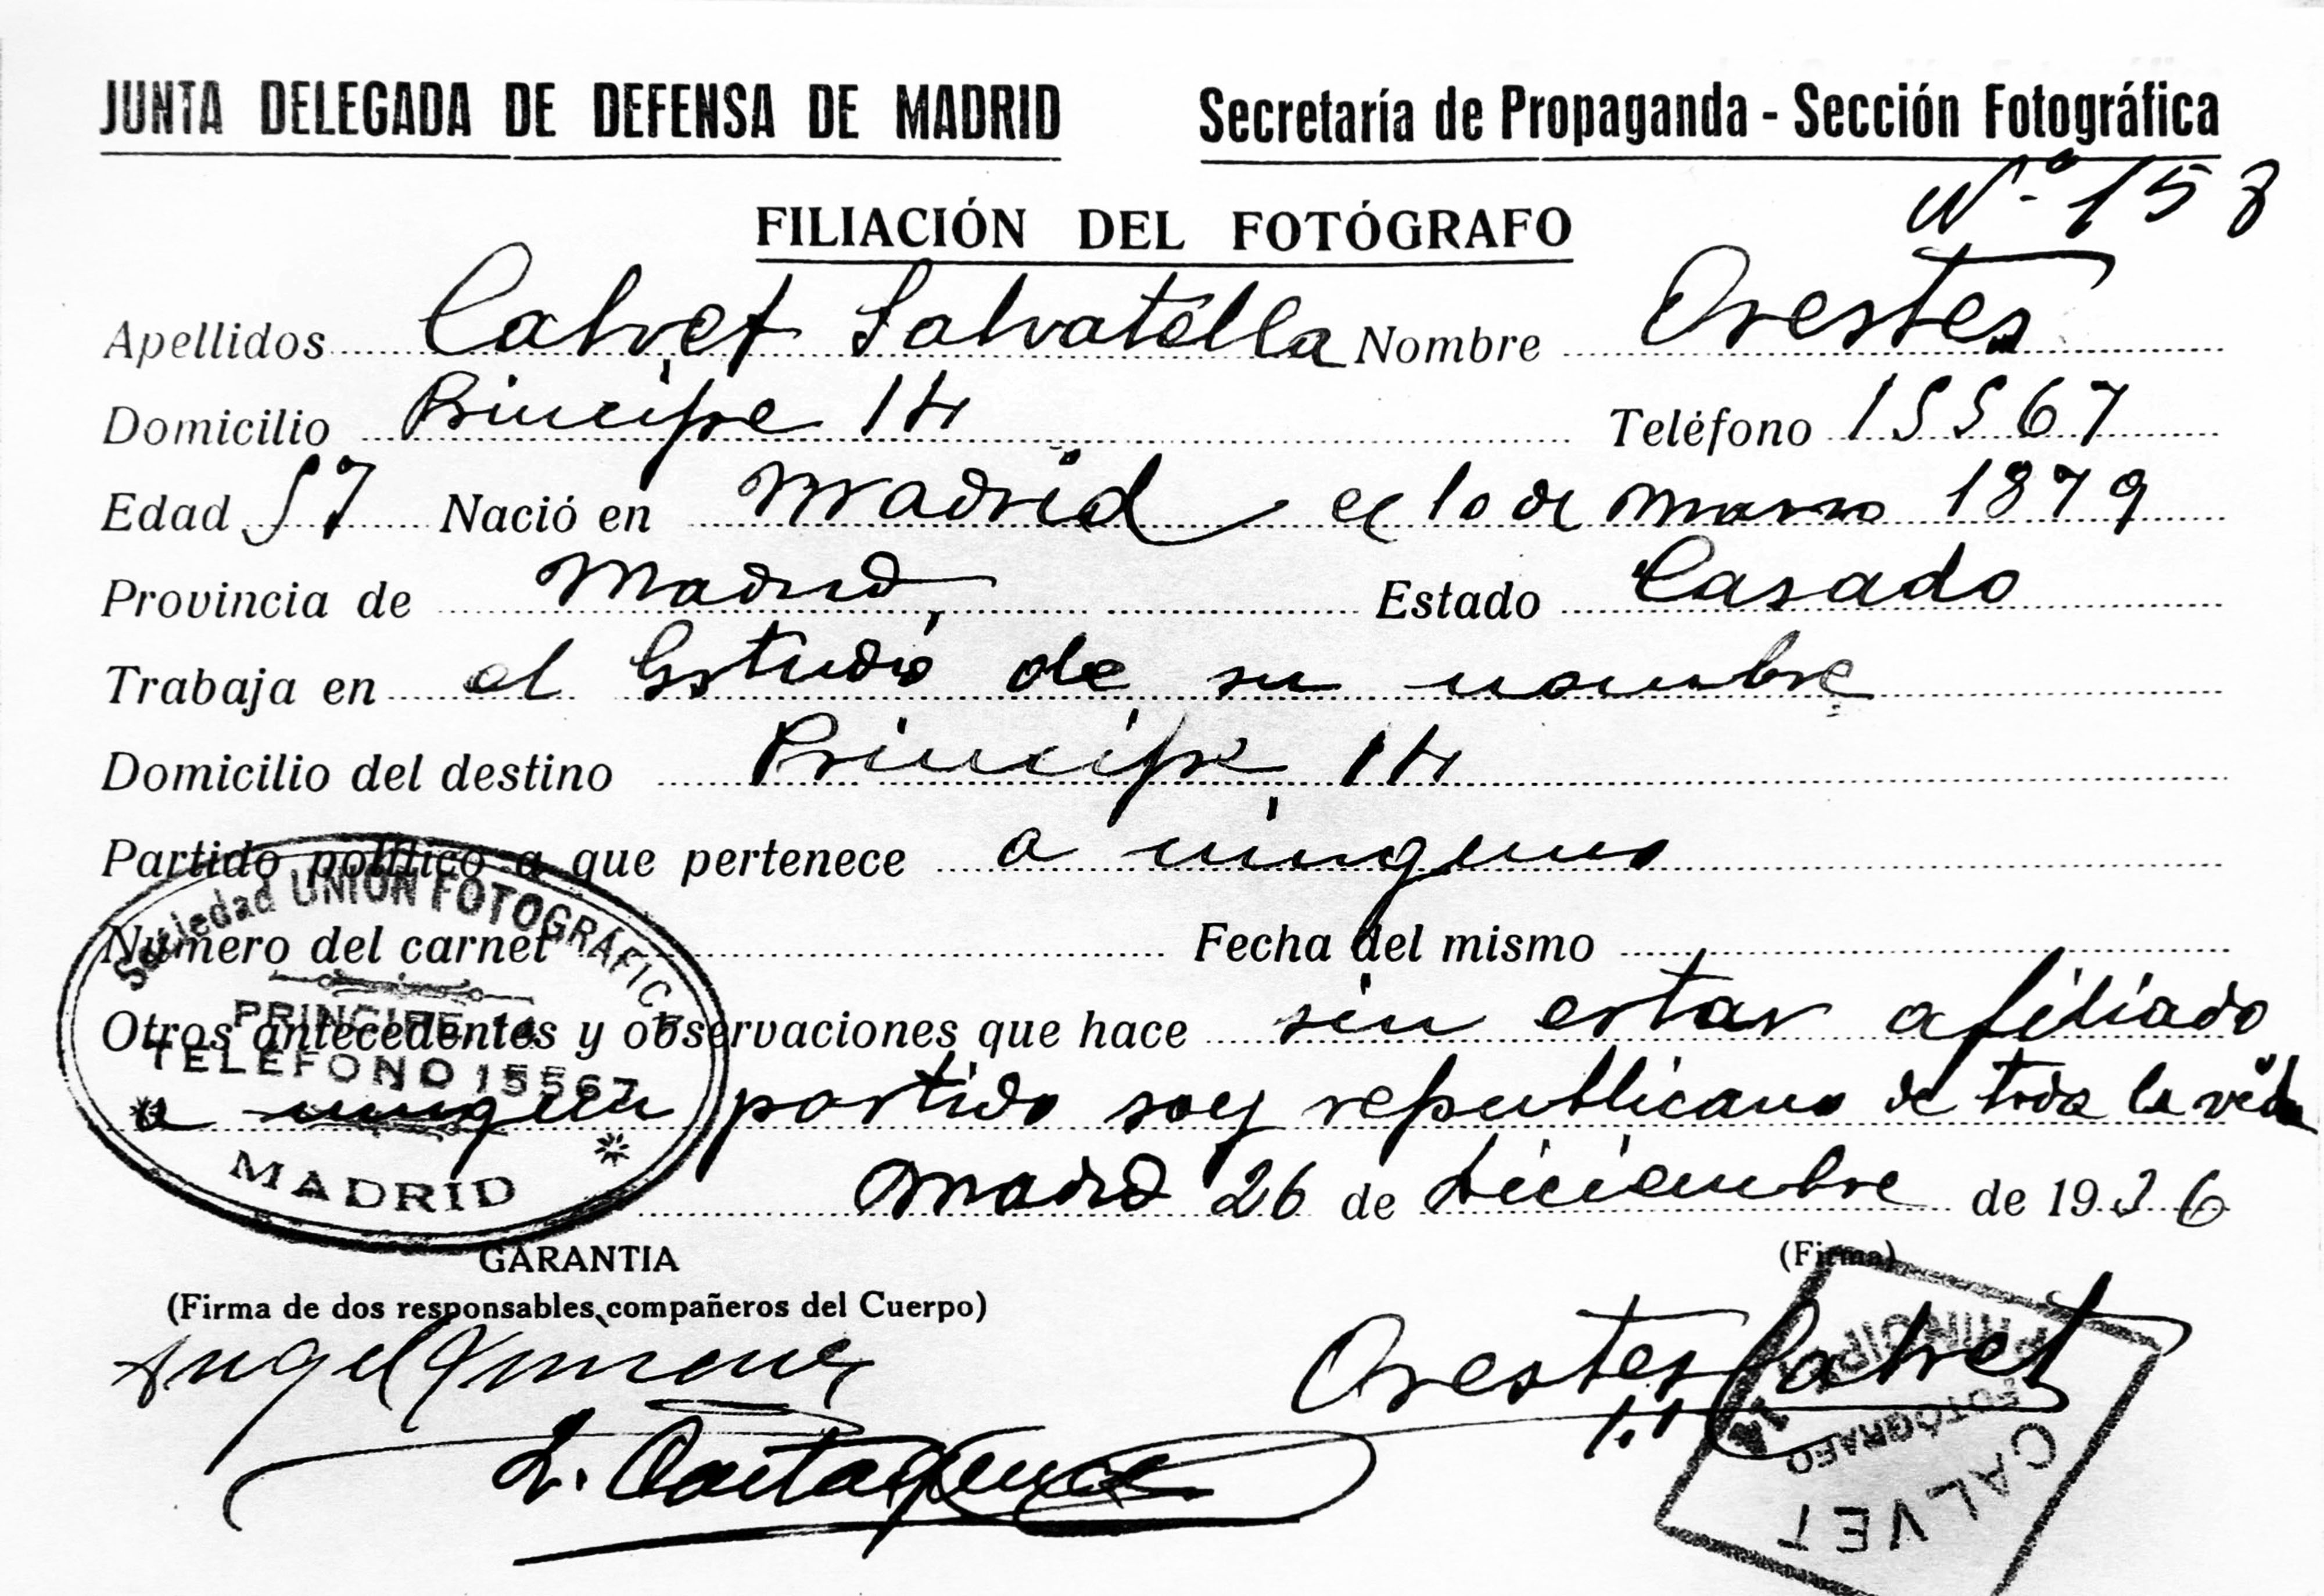 JUNTA DELEGADA DE DEFENSA DE MADRID Secretaría de Propaganda - Sección Fotográfica
Nº 158
FILIACIÓN DEL FOTÓGRAFO
Apellidos Calvet Salvatella Nombre Orestes
Domicilio Principe 14 Teléfono 15567
Edad 57 Nació en Madrid el 10 de Marzo 1879
Provincia de Madrid Estado Casado
Trabaja en el Estudio de su nombre
Domicilio del destino Principe 14
Partido político a que pertenece a ninguno
Número del carnet Fecha del mismo
Otros antecedentes y observaciones que hace sin estar afiliado
a ningun partido soy republicano de toda la vida
Madrid 26 de Diciembre de 1936
Sociedad UNION FOTOGRAFICA
PRINCIPE 14
TELEFONO 15567
MADRID
GARANTIA (Firma)
(Firma de dos responsables compañeros del Cuerpo)
Angel Orestes Calvet
PRINCIPE 14
FOTÓGRAFO
CALVET